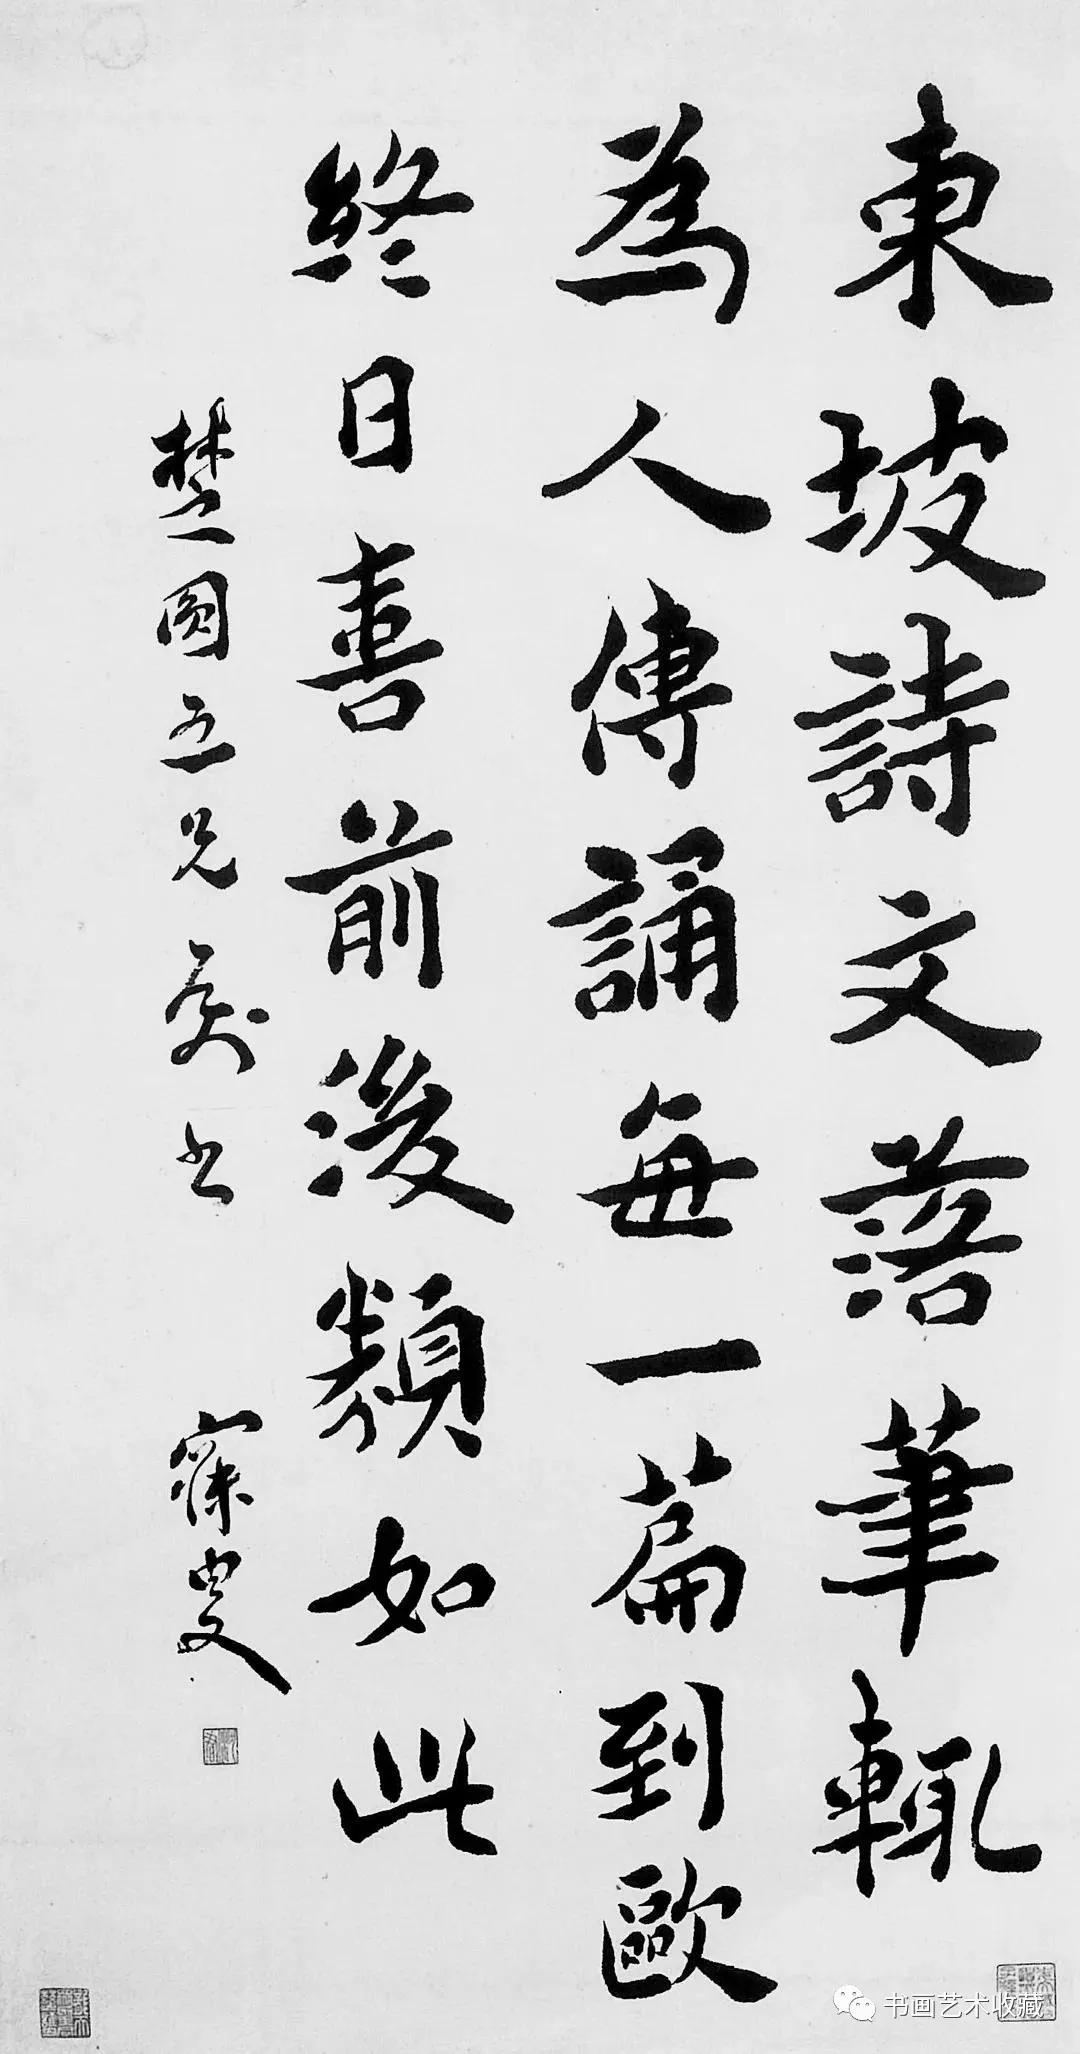 東坡詩文落筆輒
為人傳誦每一篇到歐
終日喜前後類如此
楚園五兄屬書
寐叟
书画艺术收藏